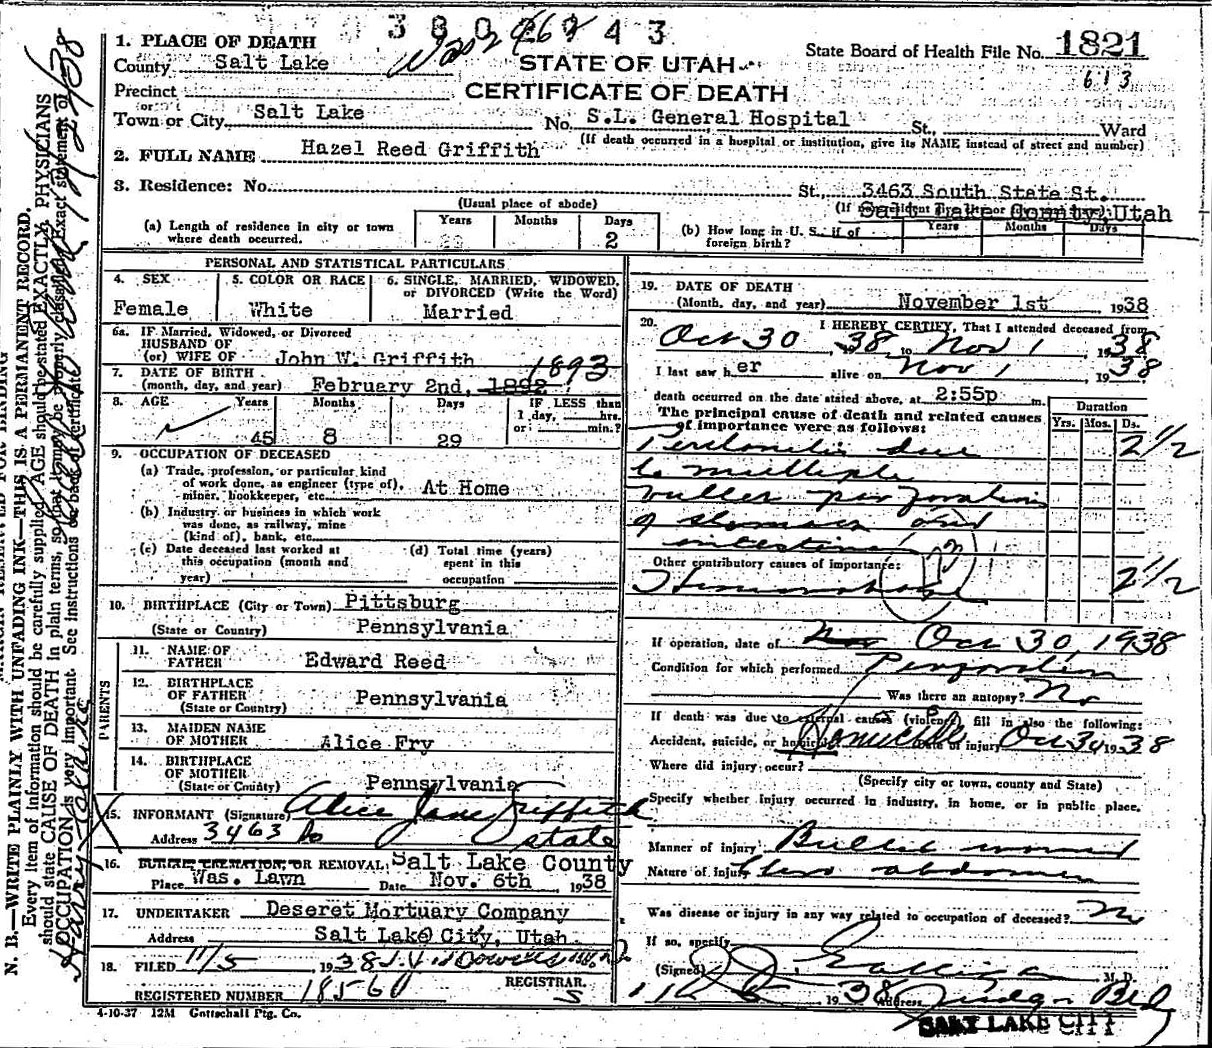 State Board of Health File No. 1821
613
STATE OF UTAH
CERTIFICATE OF DEATH
1. PLACE OF DEATH
County Salt Lake
Precinct
(or)
Town or City Salt Lake No. S.L. General Hospital St., Ward
(If death occurred in a hospital or institution, give its NAME instead of street and number)
2. FULL NAME Hazel Reed Griffith
3. Residence: No. St., 3463 South State St.
(Usual place of abode)
Salt Lake County, Utah
(a) Length of residence in city or town where death occurred. Years Months Days 2
(b) How long in U. S., if of foreign birth? Years Months Days
PERSONAL AND STATISTICAL PARTICULARS
4. SEX Female
5. COLOR OR RACE White
6. SINGLE, MARRIED, WIDOWED, or DIVORCED (Write the Word) Married
6a. IF Married, Widowed, or Divorced
HUSBAND OF
(or) WIFE OF John W. Griffith
7. DATE OF BIRTH
(month, day, and year) February 2nd, 1892 1893
8. AGE Years 45 Months 8 Days 29 IF LESS than 1 day, hrs. or min.?
9. OCCUPATION OF DECEASED
(a) Trade, profession, or particular kind of work done, as engineer (type of), miner, bookkeeper, etc. At Home
(b) Industry or business in which work was done, as railway, mine (kind of), bank, etc.
(c) Date deceased last worked at this occupation (month and year)
(d) Total time (years) spent in this occupation
10. BIRTHPLACE (City or Town) Pittsburg
(State or Country) Pennsylvania
PARENTS
11. NAME OF FATHER Edward Reed
12. BIRTHPLACE OF FATHER
(State or Country) Pennsylvania
13. MAIDEN NAME OF MOTHER Alice Fry
14. BIRTHPLACE OF MOTHER
(State or County) Pennsylvania
15. INFORMANT (Signature) Alice Jane Griffith
Address 3463 So State
16. BURIAL, CREMATION, OR REMOVAL, Salt Lake County
Place Was. Lawn Date Nov. 6th 1938
17. UNDERTAKER Deseret Mortuary Company
Address Salt Lake City, Utah
18. FILED 11/5 1938
REGISTRAR.
REGISTERED NUMBER 18560
4-10-37 12M Gottschall Ptg. Co.
19. DATE OF DEATH
(Month, day, and year) November 1st 1938
20. I HEREBY CERTIFY, That I attended deceased from
Oct 30, 1938 to Nov 1, 1938
I last saw her alive on Nov 1 1938
death occurred on the date stated above, at 2:55p m.
The principal cause of death and related causes of importance were as follows:
Duration
Yrs. Mos. Ds.
Peritonitis due 2 1/2
to multiple
bullet perforation
of stomach and
intestine
Other contributory causes of importance:
Hemorrhage 2 1/2
If operation, date of Oct 30, 1938
Condition for which performed Perforation
Was there an autopsy? No
If death was due to external causes (violence) fill in also the following:
Accident, suicide, or homicide Homicide Date of injury Oct 30 1938
Where did injury occur?
(Specify city or town, county and State)
Specify whether injury occurred in industry, in home, or in public place.
Manner of injury Bullet wound
Nature of injury thru abdomen
Was disease or injury in any way related to occupation of deceased? No
If so, specify
(Signed) M. D.
1938 Address Judge Bldg
SALT LAKE CITY
MARGIN RESERVED FOR BINDING
N. B.—WRITE PLAINLY WITH UNFADING INK—THIS IS A PERMANENT RECORD.
Every item of information should be carefully supplied. AGE should be stated EXACTLY. PHYSICIANS
should state CAUSE OF DEATH in plain terms, so that it may be properly classified. Exact statement of
OCCUPATION is very important. See instructions on back of certificate.